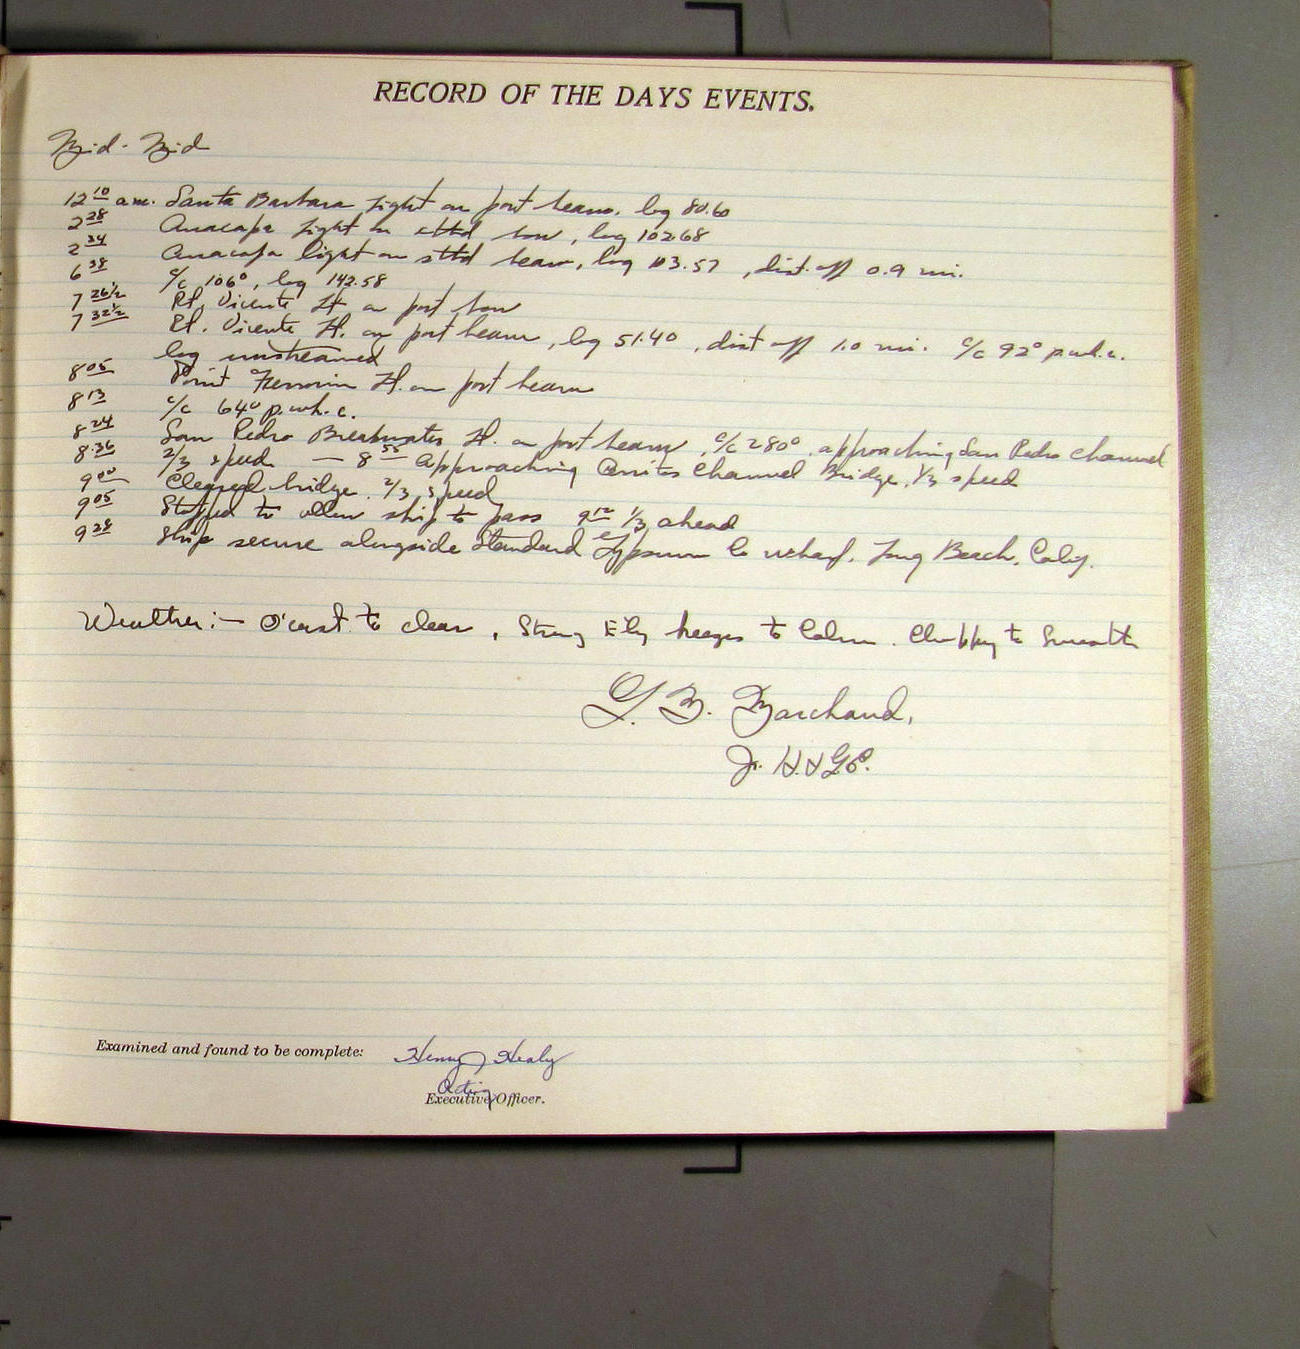 RECORD OF THE DAYS EVENTS.
Mid - Mid
12 10 a.m. Santa Barbara Light on port beam, log 80.60
2 28 Anacapa Light on stbd bow, log 102.68
2 34 Anacapa light on stbd beam, log 103.57, dist. off 0.9 mi.
6 38 c/c 106°, log 142.58
7 26 1/2 Pt. Vicente Lt. on port bow
7 32 1/2 Pt. Vicente Lt. on port beam, log 51.40, dist off 1.0 mi. c/c 92° p.wh.c.
log unstreamed
8 05 Point Lt. on port beam
8 13 c/c 64° p.wh.c.
8 24 San Pedro Breakwater Lt. on port beam, c/c 280°, approaching San Pedro Channel
8 36 2/3 speed — 8 55 Approaching Cerritos Channel Bridge, 1/3 speed
9 00 Cleared bridge. 2/3 speed
9 05 Stopped to allow ship to pass 9 12 1/3 ahead
9 28 Ship secure alongside Standard Gypsum Co wharf, Long Beach, Calif.
Weather:— O'cast to clear, Strong E'ly breezes to Calm. Choppy to Smooth
Marchand,
Jr. H. & G. E.
Examined and found to be complete: Henry J Healy
Acting
Executive Officer.